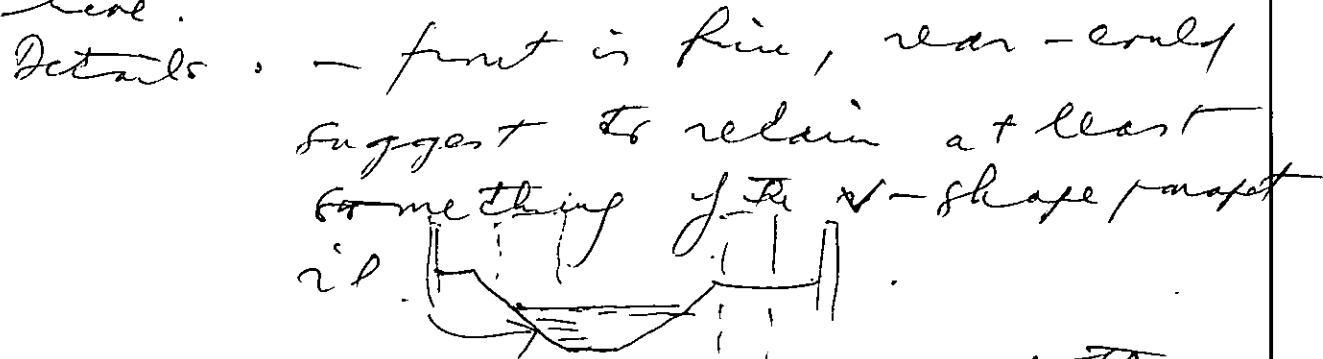 here.
Details: - front is fine, rear - could
suggest to retain at least
something of the V-shape parapet
ie.